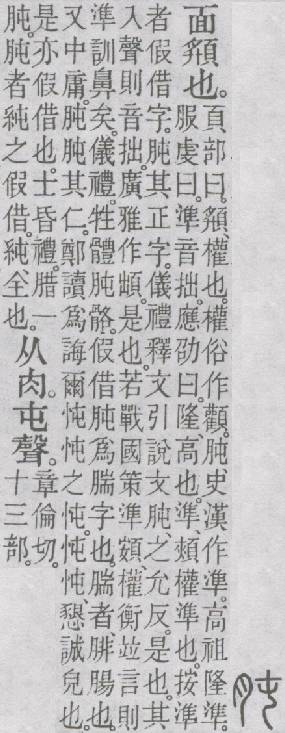 肫
面頯也。
頁部曰。頯、權也。權俗作顴。肫、史漢作準。高祖隆準。
服虔曰。準音拙。應劭曰。隆、高也。準、頰權準也。按準
者假借字。肫其正字。儀禮釋文引說文肫、之允反。是也。其
入聲則音拙。廣雅作䪼。是也。若戰國策準頞權衡竝言。則
準訓鼻矣。儀禮。牲體肫骼。假借肫爲腨字也。腨者、腓腸也。
又中庸。肫肫其仁。鄭讀爲誨爾忳忳之忳。忳忳、懇誠皃也。
是亦假借也。士昏禮。腊一
肫。肫者純之假借。純、全也。
从肉。屯聲。
章倫切。
十三部。